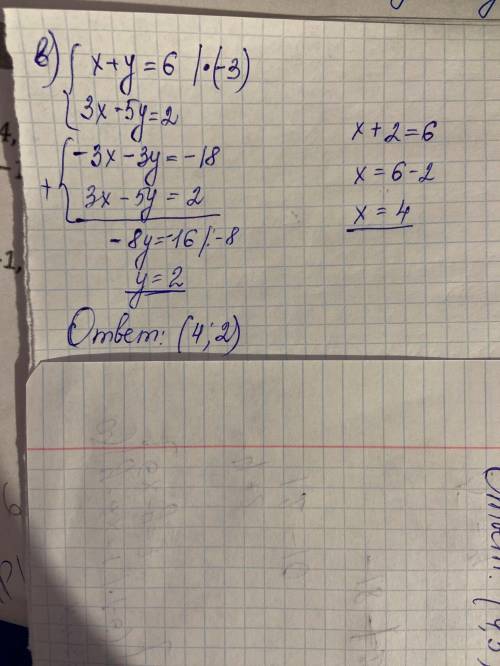 в) { x+y=6 |·(-3)
3x-5y=2
+ { -3x-3y=-18
3x-5y=2
-8y=-16 |:-8
y=2
x+2=6
x=6-2
x=4
Ответ: (4;2)
Ответ: (4,5